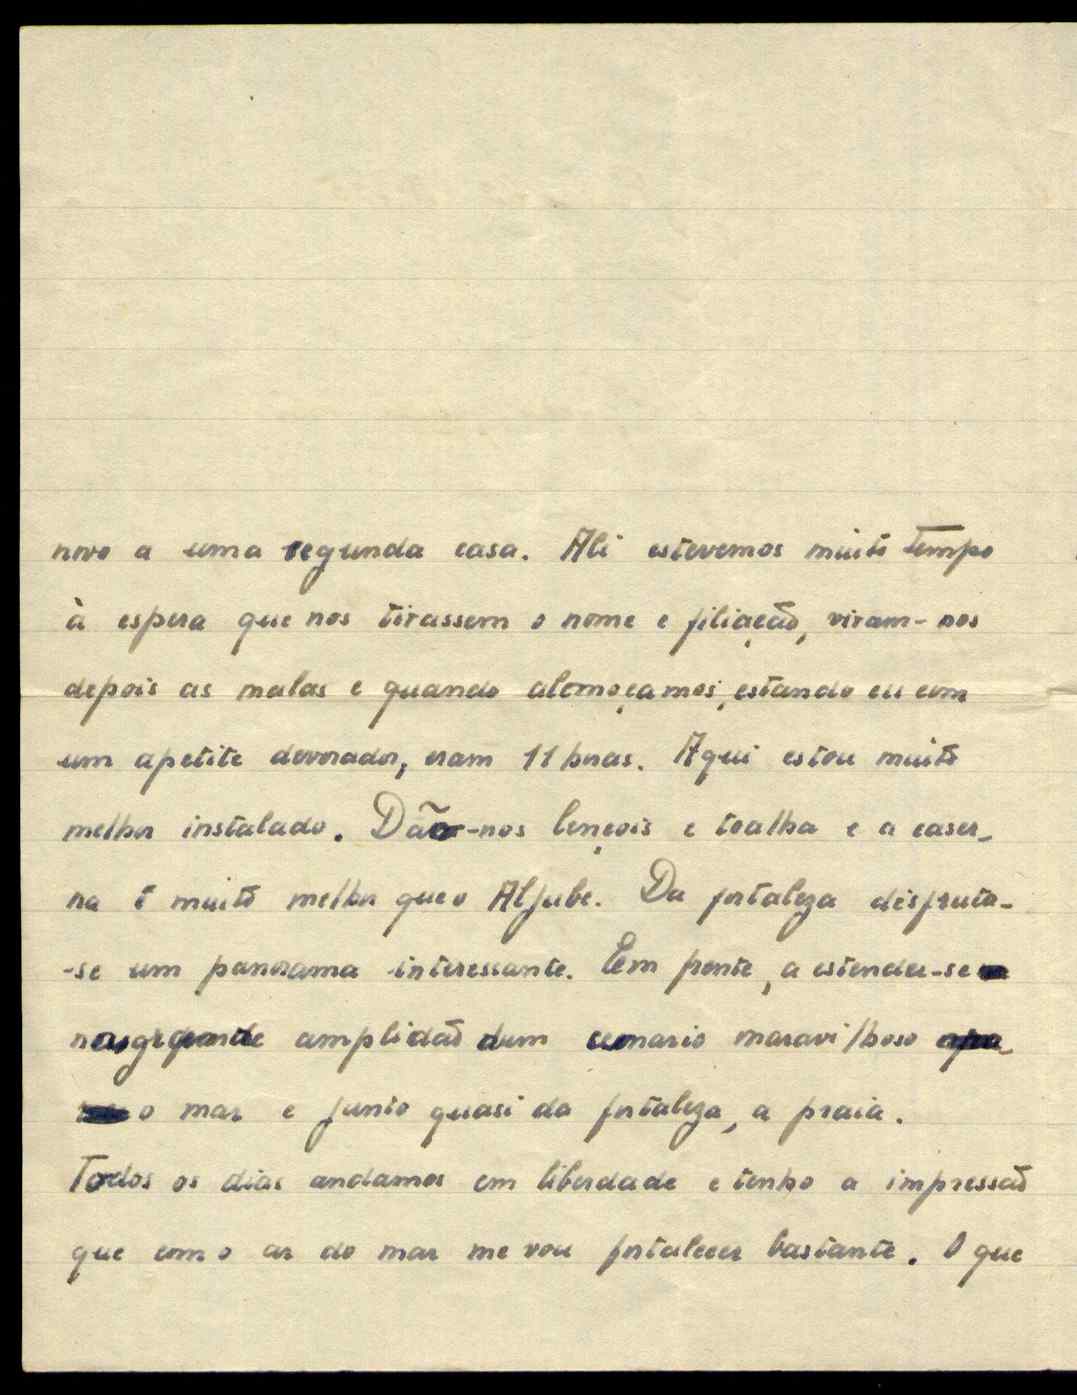 novo a uma segunda casa. Ali estevemos muito tempo
à espera que nos tirassem o nome e filiação, viram-nos
depois as malas e quando alomoçamos, estando eu com
um apetite devorador, eram 11 horas. Aqui estou muito
melhor instalado. Dão-nos lençois e toalha e a caser-
na é muito melhor que o Aljube. Da fortaleza disfruta-
-se um panorama interessante. Em frente, a estender-se
grande amplidão dum cenario maravilhoso
o mar e junto quasi da fortaleza, a praia.
Todos os dias andamos em liberdade e tenho a impressão
que com o ar do mar me vou fortalecer bastante. O que